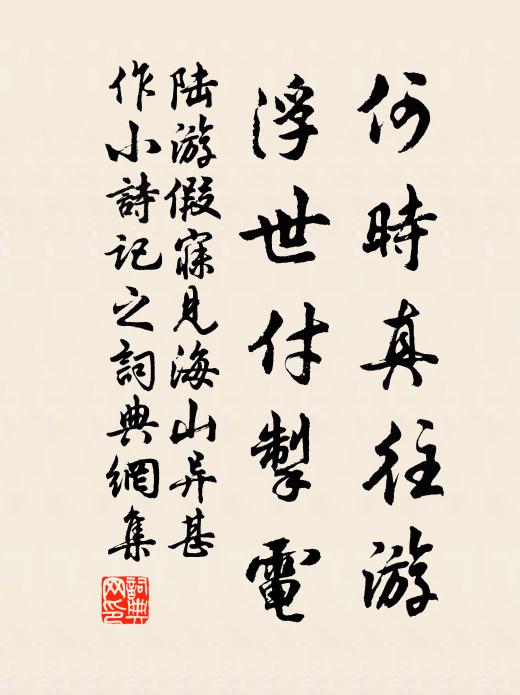 何時真往游
浮世付掣電
陆游假寐見海山异甚
作小詩記之詞典網集
詞典网印